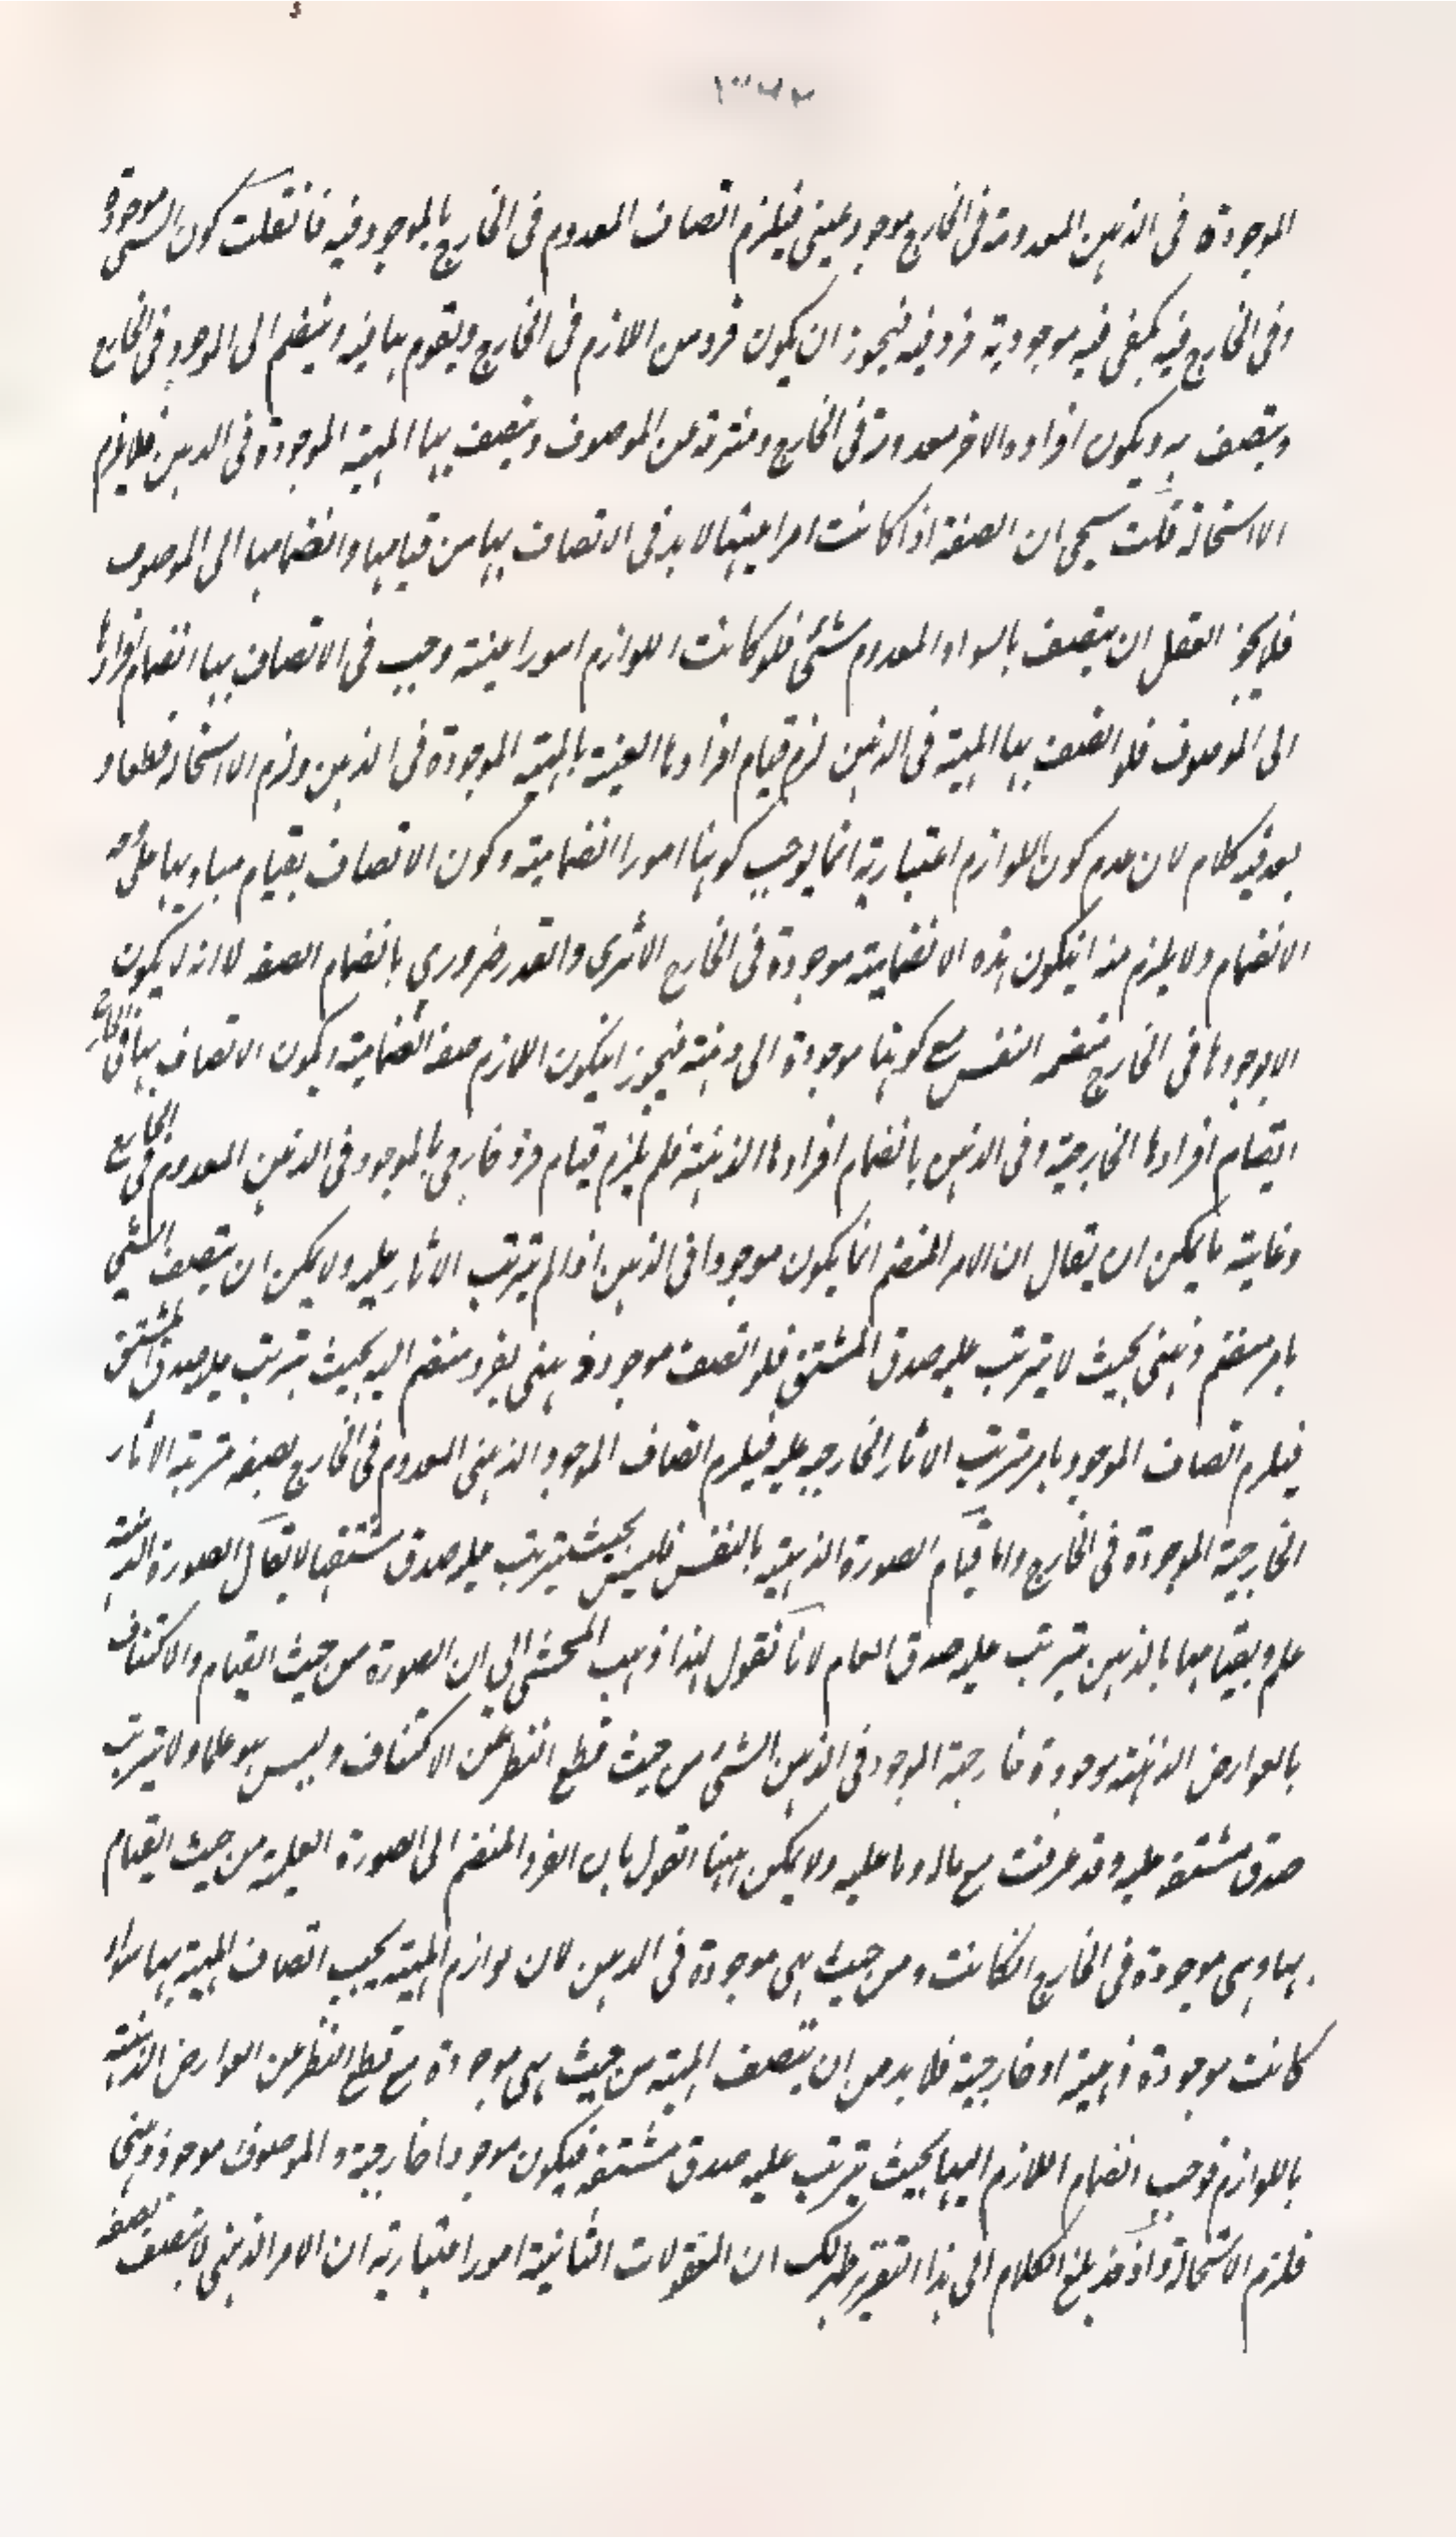 الموجودة فى الذهن المعدومة فى الخارج موجود عينى فيلزم اتصاف المعدوم فى الخارج بالموجود فيه فانقلت كون الشى موجودة
وفى الخارج فيه يكفى فيه موجودية فرد فيه فيجوز ان يكون فرد من اللازم فى الخارج ويقوم بما فيه وينضم الى الموجود فى الخارج
ويتصف به ويكون افراده الاخر معدومة فى الخارج ومنتزعة عن الموصوف ويتصف بها المهية الموجودة فى الذهن فلا يلزم
الاستحالة قلت سيجى ان الصفة اذا كانت امرا عينيا لا بد فى الاتصاف بها من قيامها وانضمامها الى الموصوف
فلا يجوز العقل ان يتصف بالسواد المعدوم شئ فلو كانت اللوازم امورا عينية وجب فى الاتصاف بها انضمام افرادها
الى الموصوف فلو اتصف بها المهية فى الذهن لزم قيام افرادها العينية بالمهية الموجودة فى الذهن ولزم الاستحالة قطعا و
بعد فيه كلام لان عدم كون اللوازم اعتبارية انما يوجب كونها امورا انضمامية وكون الاتصاف بقيام مباديها على وجه
الانضمام ولا يلزم منه ان يكون هذه الانضمامية موجودة فى الخارج الا ترى والقدر ضرورى بانضمام الصفة لا انه لا يكون
الا وجودها فى الخارج منضمة النفس مع كونها موجودة الى ذهنية فيجوز ان يكون اللازم صفة انضمامية ويكون الاتصاف بها فى الخارج
بانضمام افرادها الخارجية وفى الذهن بانضمام افرادها الذهنية فلم يلزم قيام فرد خارجى بالموجود فى الذهن المعدوم فى الخارج
وغاية ما يمكن ان يقال ان الامر المنضم انما يكون موجودا فى الذهن اذا لم يترتب الاثار عليه ولا يمكن ان يتصف الشئ
بامر منضم ذهنى بحيث لا يترتب عليه صدق المشتق فلو اتصف موجود ذهنى بفرد منضم اليه بحيث يترتب عليه صدق المشتق
فيلزم اتصاف الموجود بامر يترتب الاثار الخارجية عليه فيلزم اتصاف الموجود الذهنى المعدوم فى الخارج بصفة مترتبة الاثار
الخارجية الموجودة فى الخارج واما قيام الصورة الذهنية بالنفس فليس بحيث يترتب عليه صدق مشتقها لا يقال الصورة الذهنية
علم وبقيامها بالذهن يترتب عليه صدق العالم لانا نقول لهذا ذهب المحشى الى ان الصورة من حيث القيام والاكتناف
بالعوارض الذهنية موجودة خارجية الموجود فى الذهن الشئ من حيث قطع النظر عن الاكتناف وليس هو علما ولا يترتب
صدق مشتقه عليه وقد عرفت مع ماله وما عليه ولا يمكن ههنا القول بان الفرد المنضم الى الصورة العلمية من حيث القيام
بها وهى موجودة فى الخارج لكانت ومن حيث هى موجودة فى الذهن لان لوازم المهية يجب اتصاف المهية بها سواء
كانت موجودة ذهنية او خارجية فلا بد من ان يتصف المهية من حيث هى موجودة مع قطع النظر عن العوارض الذهنية
باللوازم فوجب انضمام اللازم اليها بحيث يترتب عليه صدق مشتقه فيكون موجودا خارجية والموصوف موجود ذهنى
فلزم الاستحالة واذ قد بلغ الكلام الى هذا التقرير ظهر لك ان المعقولات الثانية امور اعتبارية ان الامر الذهنى لا يتصف بصفة